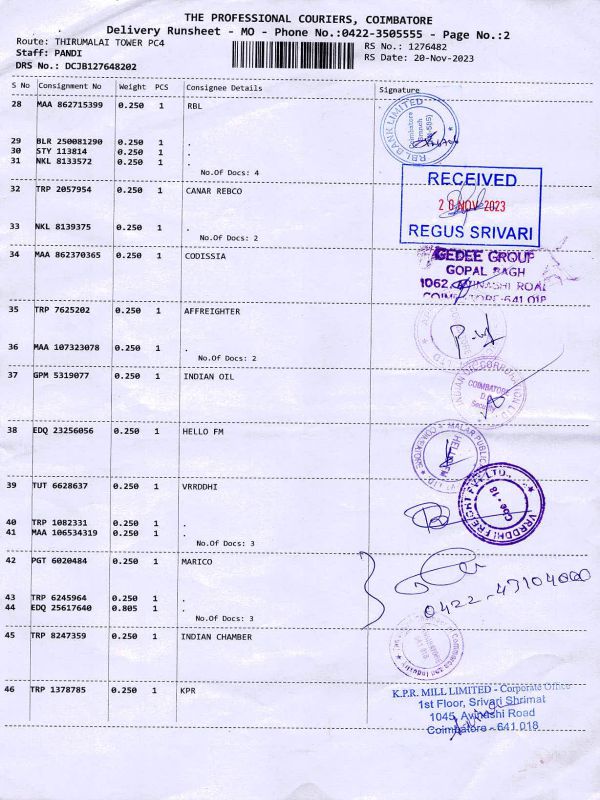 THE PROFESSIONAL COURIERS, COIMBATORE
Delivery Runsheet - MO - Phone No.:0422-3505555 - Page No.:2
Route: THIRUMALAI TOWER PC4
RS No.: 1276482
Staff: PANDI
RS Date: 20-Nov-2023
DRS No.: DCJB127648202
S No Consignment No Weight PCS Consignee Details Signature
28 MAA 862715399 0.250 1 RBL
RBL BANK LIMITED
Coimbatore
Branch
29 BLR 250081290 0.250 1 .
30 STY 113814 0.250 1 .
31 NKL 8133572 0.250 1 .
No.Of Docs: 4
RECEIVED
32 TRP 2057954 0.250 1 CANAR REBCO
20 NOV 2023
33 NKL 8139375 0.250 1 .
REGUS SRIVARI
No.Of Docs: 2
34 MAA 862370365 0.250 1 CODISSIA
GEDEE GROUP
GOPAL BAGH
1062, AVINASHI ROAD
COIMBATORE-641 018
35 TRP 7625202 0.250 1 AFFREIGHTER
36 MAA 107323078 0.250 1 .
No.Of Docs: 2
37 GPM 5319077 0.250 1 INDIAN OIL
INDIAN OIL CORPORATION LTD
COIMBATORE
D.O.
38 EDQ 23256056 0.250 1 HELLO FM
MALAR PUBLIC
COIMBATORE
HELLO FM
39 TUT 6628637 0.250 1 VRRDDHI
VRRDDHI FREIGHT PVT LTD.,
Cbe - 18
40 TRP 1082331 0.250 1 .
41 MAA 106534319 0.250 1 .
No.Of Docs: 3
42 PGT 6020484 0.250 1 MARICO
43 TRP 6245964 0.250 1 .
44 EDQ 25617640 0.805 1 .
0422-47104000
No.Of Docs: 3
45 TRP 8247359 0.250 1 INDIAN CHAMBER
Commerce and Industry
641 018
46 TRP 1378785 0.250 1 KPR
K.P.R. MILL LIMITED - Corporate Office
1st Floor, Srivari Shrimat
1045, Avinashi Road
Coimbatore - 641 018